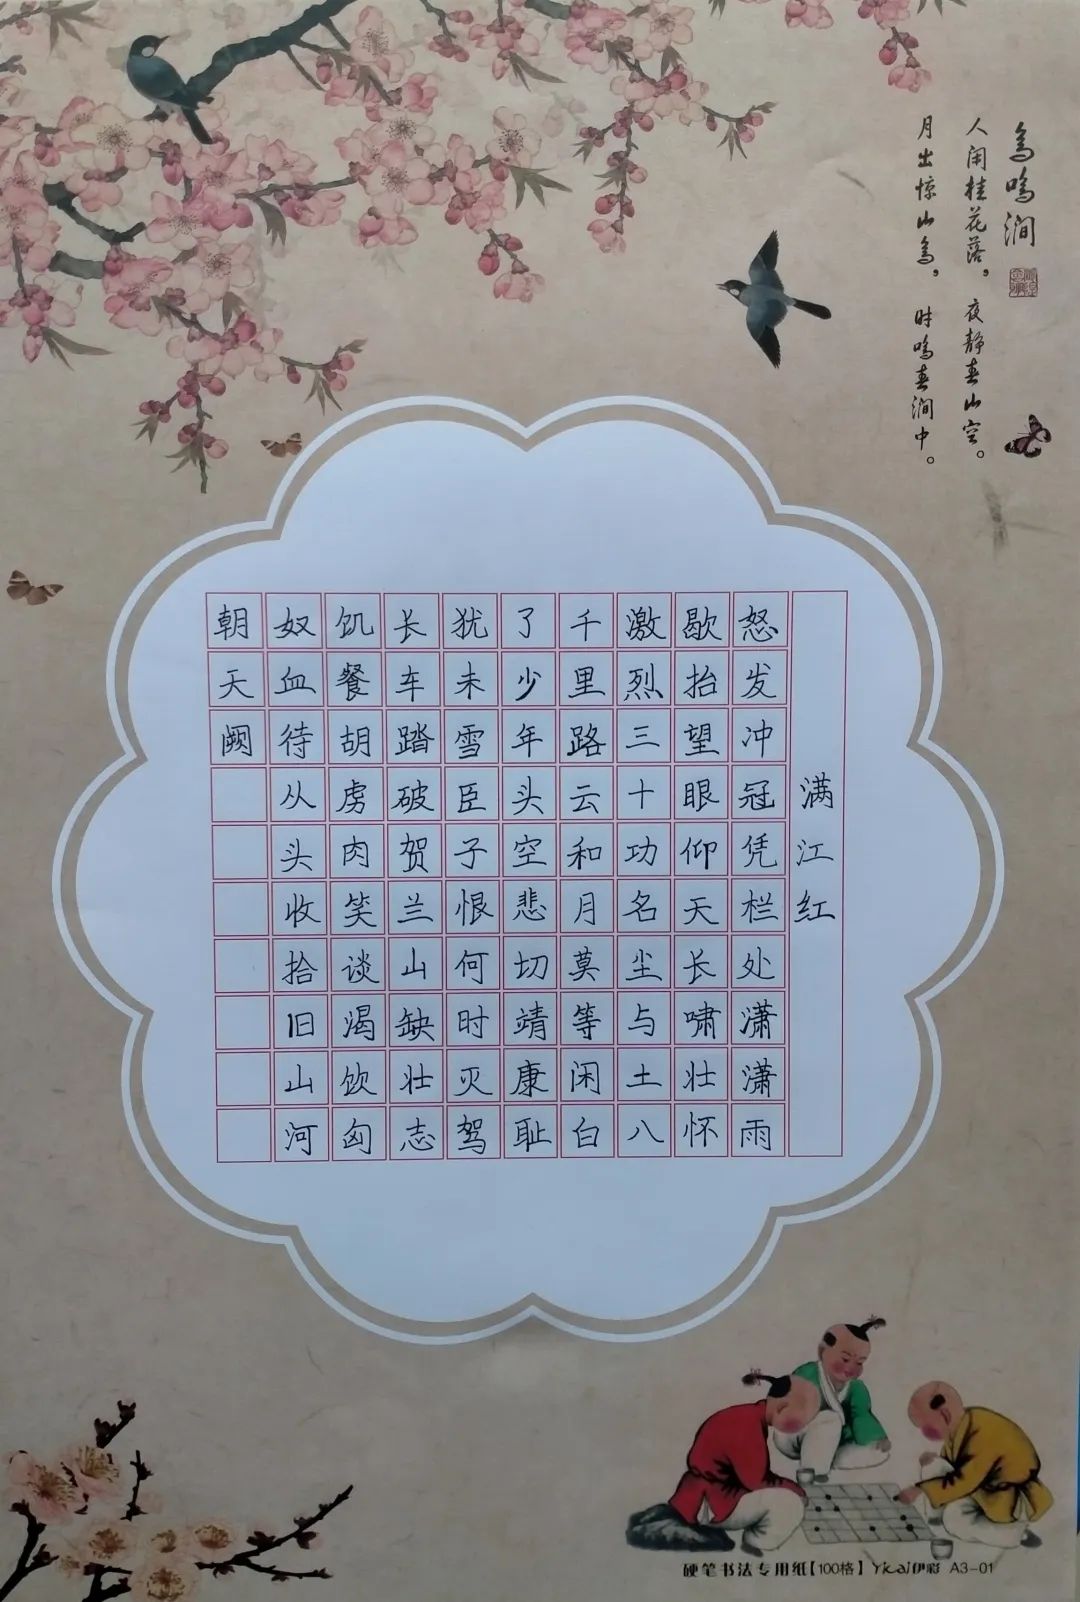 鸟鸣涧
人闲桂花落，夜静春山空。
月出惊山鸟，时鸣春涧中。
满江红
怒发冲冠凭栏处潇潇雨
歇抬望眼仰天长啸壮怀
激烈三十功名尘与土八
千里路云和月莫等闲白
了少年头空悲切靖康耻
犹未雪臣子恨何时灭驾
长车踏破贺兰山缺壮志
饥餐胡虏肉笑谈渴饮匈
奴血待从头收拾旧山河
朝天阙
硬笔书法专用纸【100格】 Yicai伊彩 A3-01